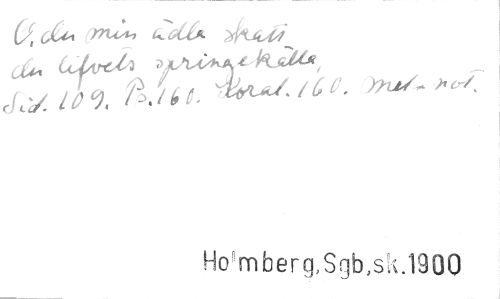 O, du min ädla skatt
du lifvets springekälla,
Sid. 109. Ps. 160. Koral. 160. mel = not.
Holmberg,Sgb,sk.1900